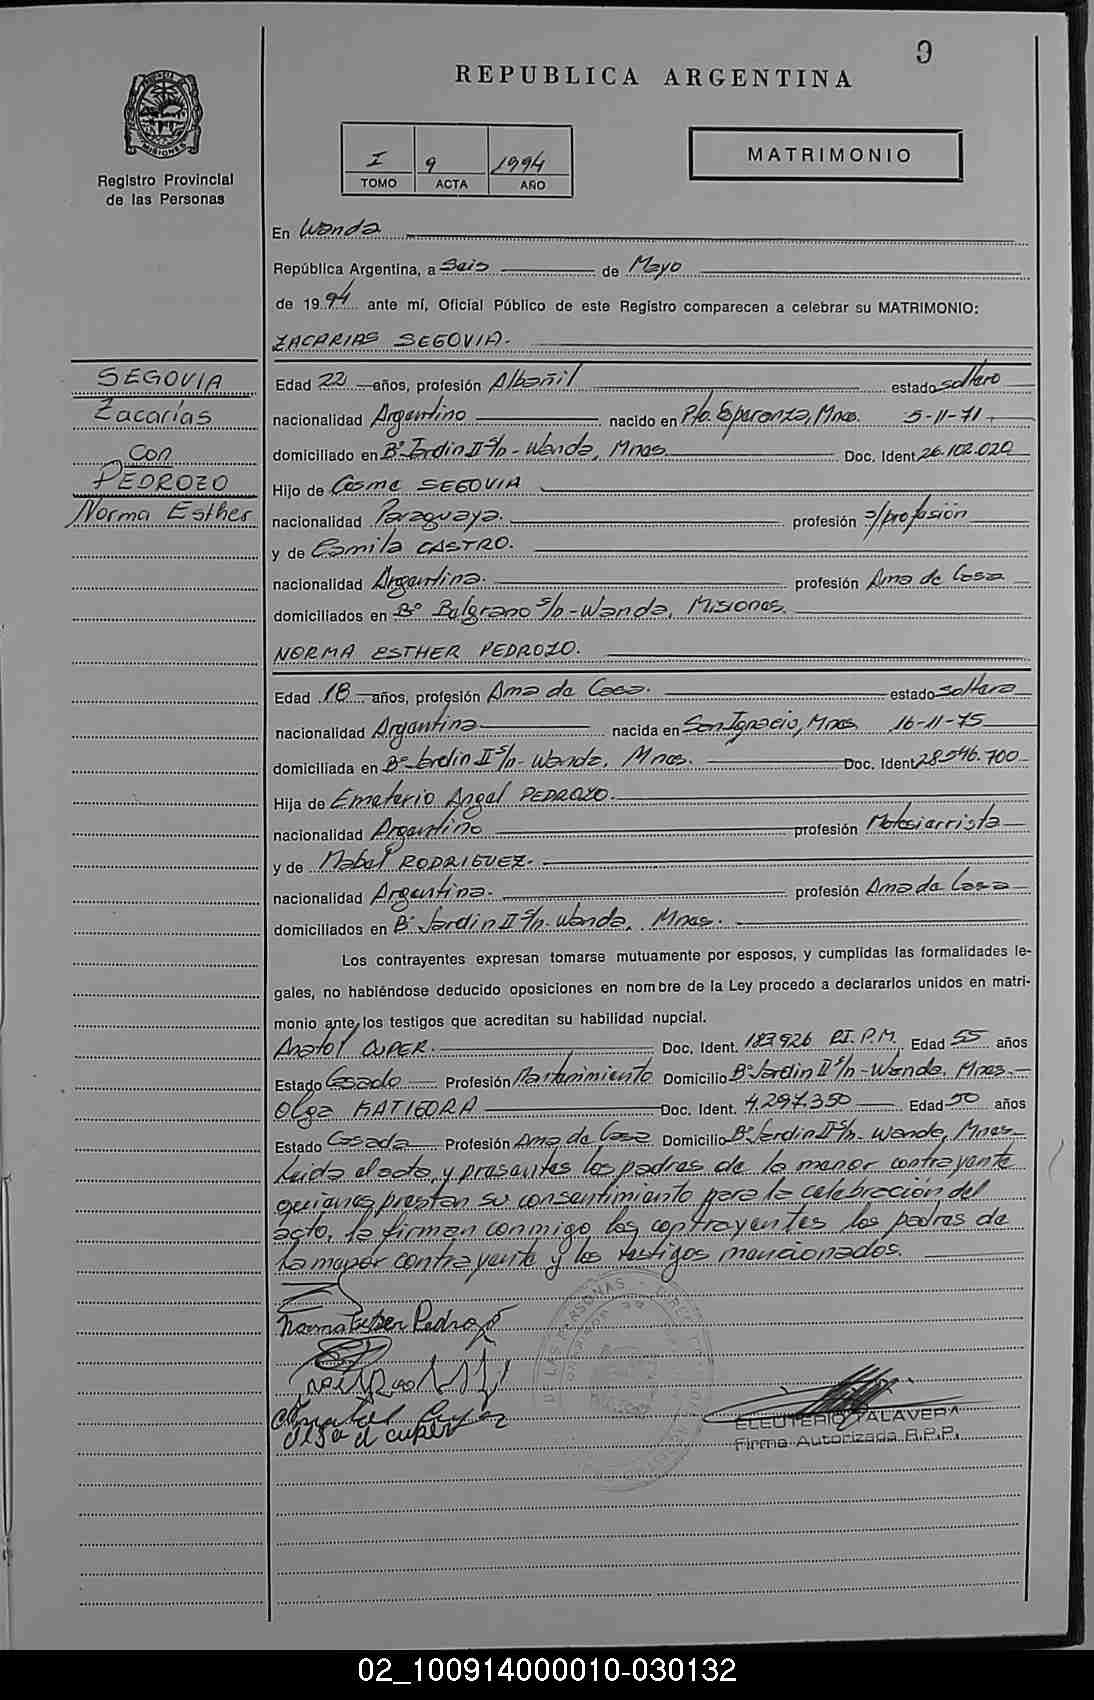 9
REPUBLICA ARGENTINA
MISIONES
Registro Provincial
de las Personas
I 9 1994
TOMO ACTA AÑO
MATRIMONIO
En Wanda
República Argentina, a Seis de Mayo
de 1994 ante mí, Oficial Público de este Registro comparecen a celebrar su MATRIMONIO:
ZACARIAS SEGOVIA.
SEGOVIA
Zacarías
con
PEDROZO
Norma Esther
Edad 22 años, profesión Albañil estado soltero
nacionalidad Argentino nacido en Pto. Esperanza, Mnes. 5-11-71
domiciliado en Bº Jardin II s/n - Wanda, Mnes. Doc. Ident. 26.102.020
Hijo de Cosme SEGOVIA
nacionalidad Paraguaya. profesión s/profesión
y de Camila CASTRO.
nacionalidad Argentina. profesión Ama de Casa
domiciliados en Bº Belgrano s/n - Wanda, Misiones.
NORMA ESTHER PEDROZO.
Edad 18 años, profesión Ama de Casa. estado soltera
nacionalidad Argentina nacida en San Ignacio, Mnes. 16-11-75
domiciliada en Bº Jardin II s/n - Wanda, Mnes. Doc. Ident. 28.546.700
Hija de Emeterio Angel PEDROZO.
nacionalidad Argentino profesión Motosierrista
y de Mabel RODRIGUEZ.
nacionalidad Argentina. profesión Ama de Casa
domiciliados en Bº Jardin II s/n - Wanda, Mnes.
Los contrayentes expresan tomarse mutuamente por esposos, y cumplidas las formalidades le-
gales, no habiéndose deducido oposiciones en nombre de la Ley procedo a declararlos unidos en matri-
monio ante los testigos que acreditan su habilidad nupcial.
Anatol CUPER. Doc. Ident. 183926 P.I.P.M. Edad 55 años
Estado Casado Profesión Mantenimiento Domicilio Bº Jardin II s/n - Wanda, Mnes.
Olga KATIGORA Doc. Ident. 4.297.350 Edad 50 años
Estado Casada Profesión Ama de Casa Domicilio Bº Jardin II s/n. Wanda, Mnes.
Leida el acta, y presentes los padres de la menor contrayente
quienes prestan su consentimiento para la celebración del
acto, la firman conmigo los contrayentes los padres de
la menor contrayente y los testigos mencionados.
Norma Esther Pedrozo
DE LAS PERSONAS
Olga d cuper
ELEUTERIO TALAVERA
Firma Autorizada R.P.P.
02_100914000010-030132